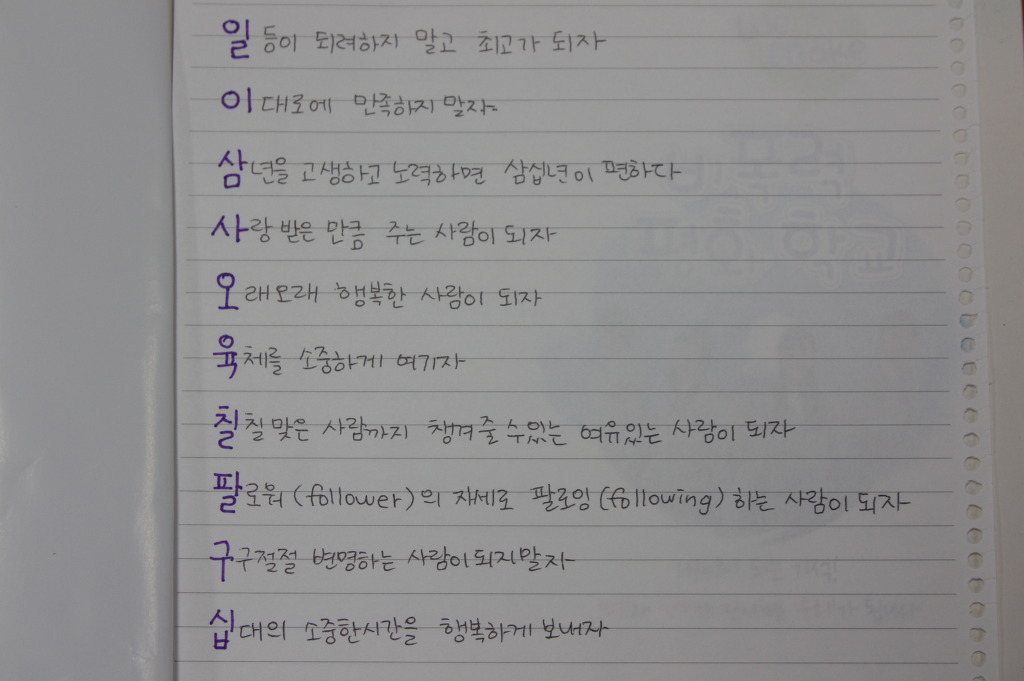 일등이 되려하지 말고 최고가 되자
이대로에 만족하지 말자
삼년을 고생하고 노력하면 삼십년이 편하다
사랑 받은 만큼 주는 사람이 되자
오래오래 행복한 사람이 되자
육체를 소중하게 여기자
칠칠 맞은 사람까지 챙겨줄 수 있는 여유있는 사람이 되자
팔로워(follower)의 자세로 팔로잉(following)하는 사람이 되자
구구절절 변명하는 사람이 되지말자
십대의 소중한시간을 행복하게 보내자